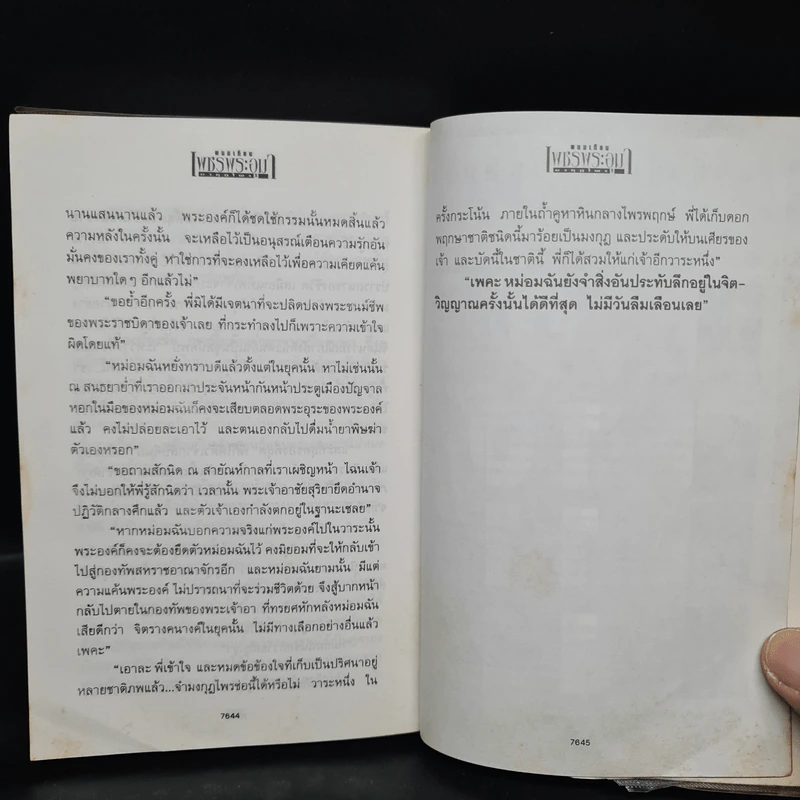 พนมเทียน
เพชรพระอุมา
นานแสนนานแล้ว พระองค์ก็ได้ชดใช้กรรมนั้นหมดสิ้นแล้ว
ความหลังในครั้งนั้น จะเหลือไว้เป็นอนุสรณ์เตือนความรักอัน
มั่นคงของเราทั้งคู่ หาใช่การที่จะคงเหลือไว้เพื่อความเคียดแค้น
พยาบาทใดๆ อีกแล้วไม่”
“ขอย้ำอีกครั้ง พี่มิได้มีเจตนาที่จะปลิดปลงพระชนม์ชีพ
ของพระราชบิดาของเจ้าเลย ที่กระทำลงไปก็เพราะความเข้าใจ
ผิดโดยแท้”
“หม่อมฉันหยั่งทราบดีแล้วตั้งแต่ในยุคนั้น หาไม่เช่นนั้น
ณ สนธยาย่ำที่เราออกมาประจันหน้ากันหน้าประตูเมืองปัญจาล
หอกในมือของหม่อมฉันก็คงจะเสียบตลอดพระอุระของพระองค์
แล้ว คงไม่ปล่อยละเอาไว้ และตนเองกลับไปดื่มน้ำยาพิษฆ่า
ตัวเองหรอก”
“ขอถามสักนิด ณ สายัณห์กาลที่เราเผชิญหน้า ไฉนเจ้า
จึงไม่บอกให้พี่รู้สักนิดว่า เวลานั้น พระเจ้าอาชัยสุริยายึดอำนาจ
ปฏิวัติกลางศึกแล้ว และตัวเจ้าเองกำลังตกอยู่ในฐานะเชลย”
“หากหม่อมฉันบอกความจริงแก่พระองค์ไปในวาระนั้น
พระองค์ก็คงจะต้องยึดตัวหม่อมฉันไว้ คงมิยอมที่จะให้กลับเข้า
ไปสู่กองทัพสหราชอาณาจักรอีก และหม่อมฉันยามนั้น มีแต่
ความแค้นพระองค์ ไม่ปรารถนาที่จะร่วมชีวิตด้วย จึงสู้บากหน้า
กลับไปตายในกองทัพของพระเจ้าอา ที่ทรยศหักหลังหม่อมฉัน
เสียดีกว่า จิตรางคนางค์ในยุคนั้น ไม่มีทางเลือกอย่างอื่นแล้ว
เพคะ”
“เอาละ พี่เข้าใจ และหมดข้อข้องใจที่เก็บเป็นปริศนาอยู่
หลายชาติภพแล้ว...จำมงกุฎไพรช่อนี้ได้หรือไม่ วาระหนึ่ง ใน
7644
พนมเทียน
เพชรพระอุมา
ครั้งกระโน้น ภายในถ้ำคูหาหินกลางไพรพฤกษ์ พี่ได้เก็บดอก
พฤกษาชาติชนิดนี้มาร้อยเป็นมงกุฎ และประดับให้บนเศียรของ
เจ้า และบัดนี้ในชาตินี้ พี่ก็ได้สวมให้แก่เจ้าอีกวาระหนึ่ง”
“เพคะ หม่อมฉันยังจำสิ่งอันประทับลึกอยู่ในจิต-
วิญญาณครั้งนั้นได้ดีที่สุด ไม่มีวันลืมเลือนเลย”
7645